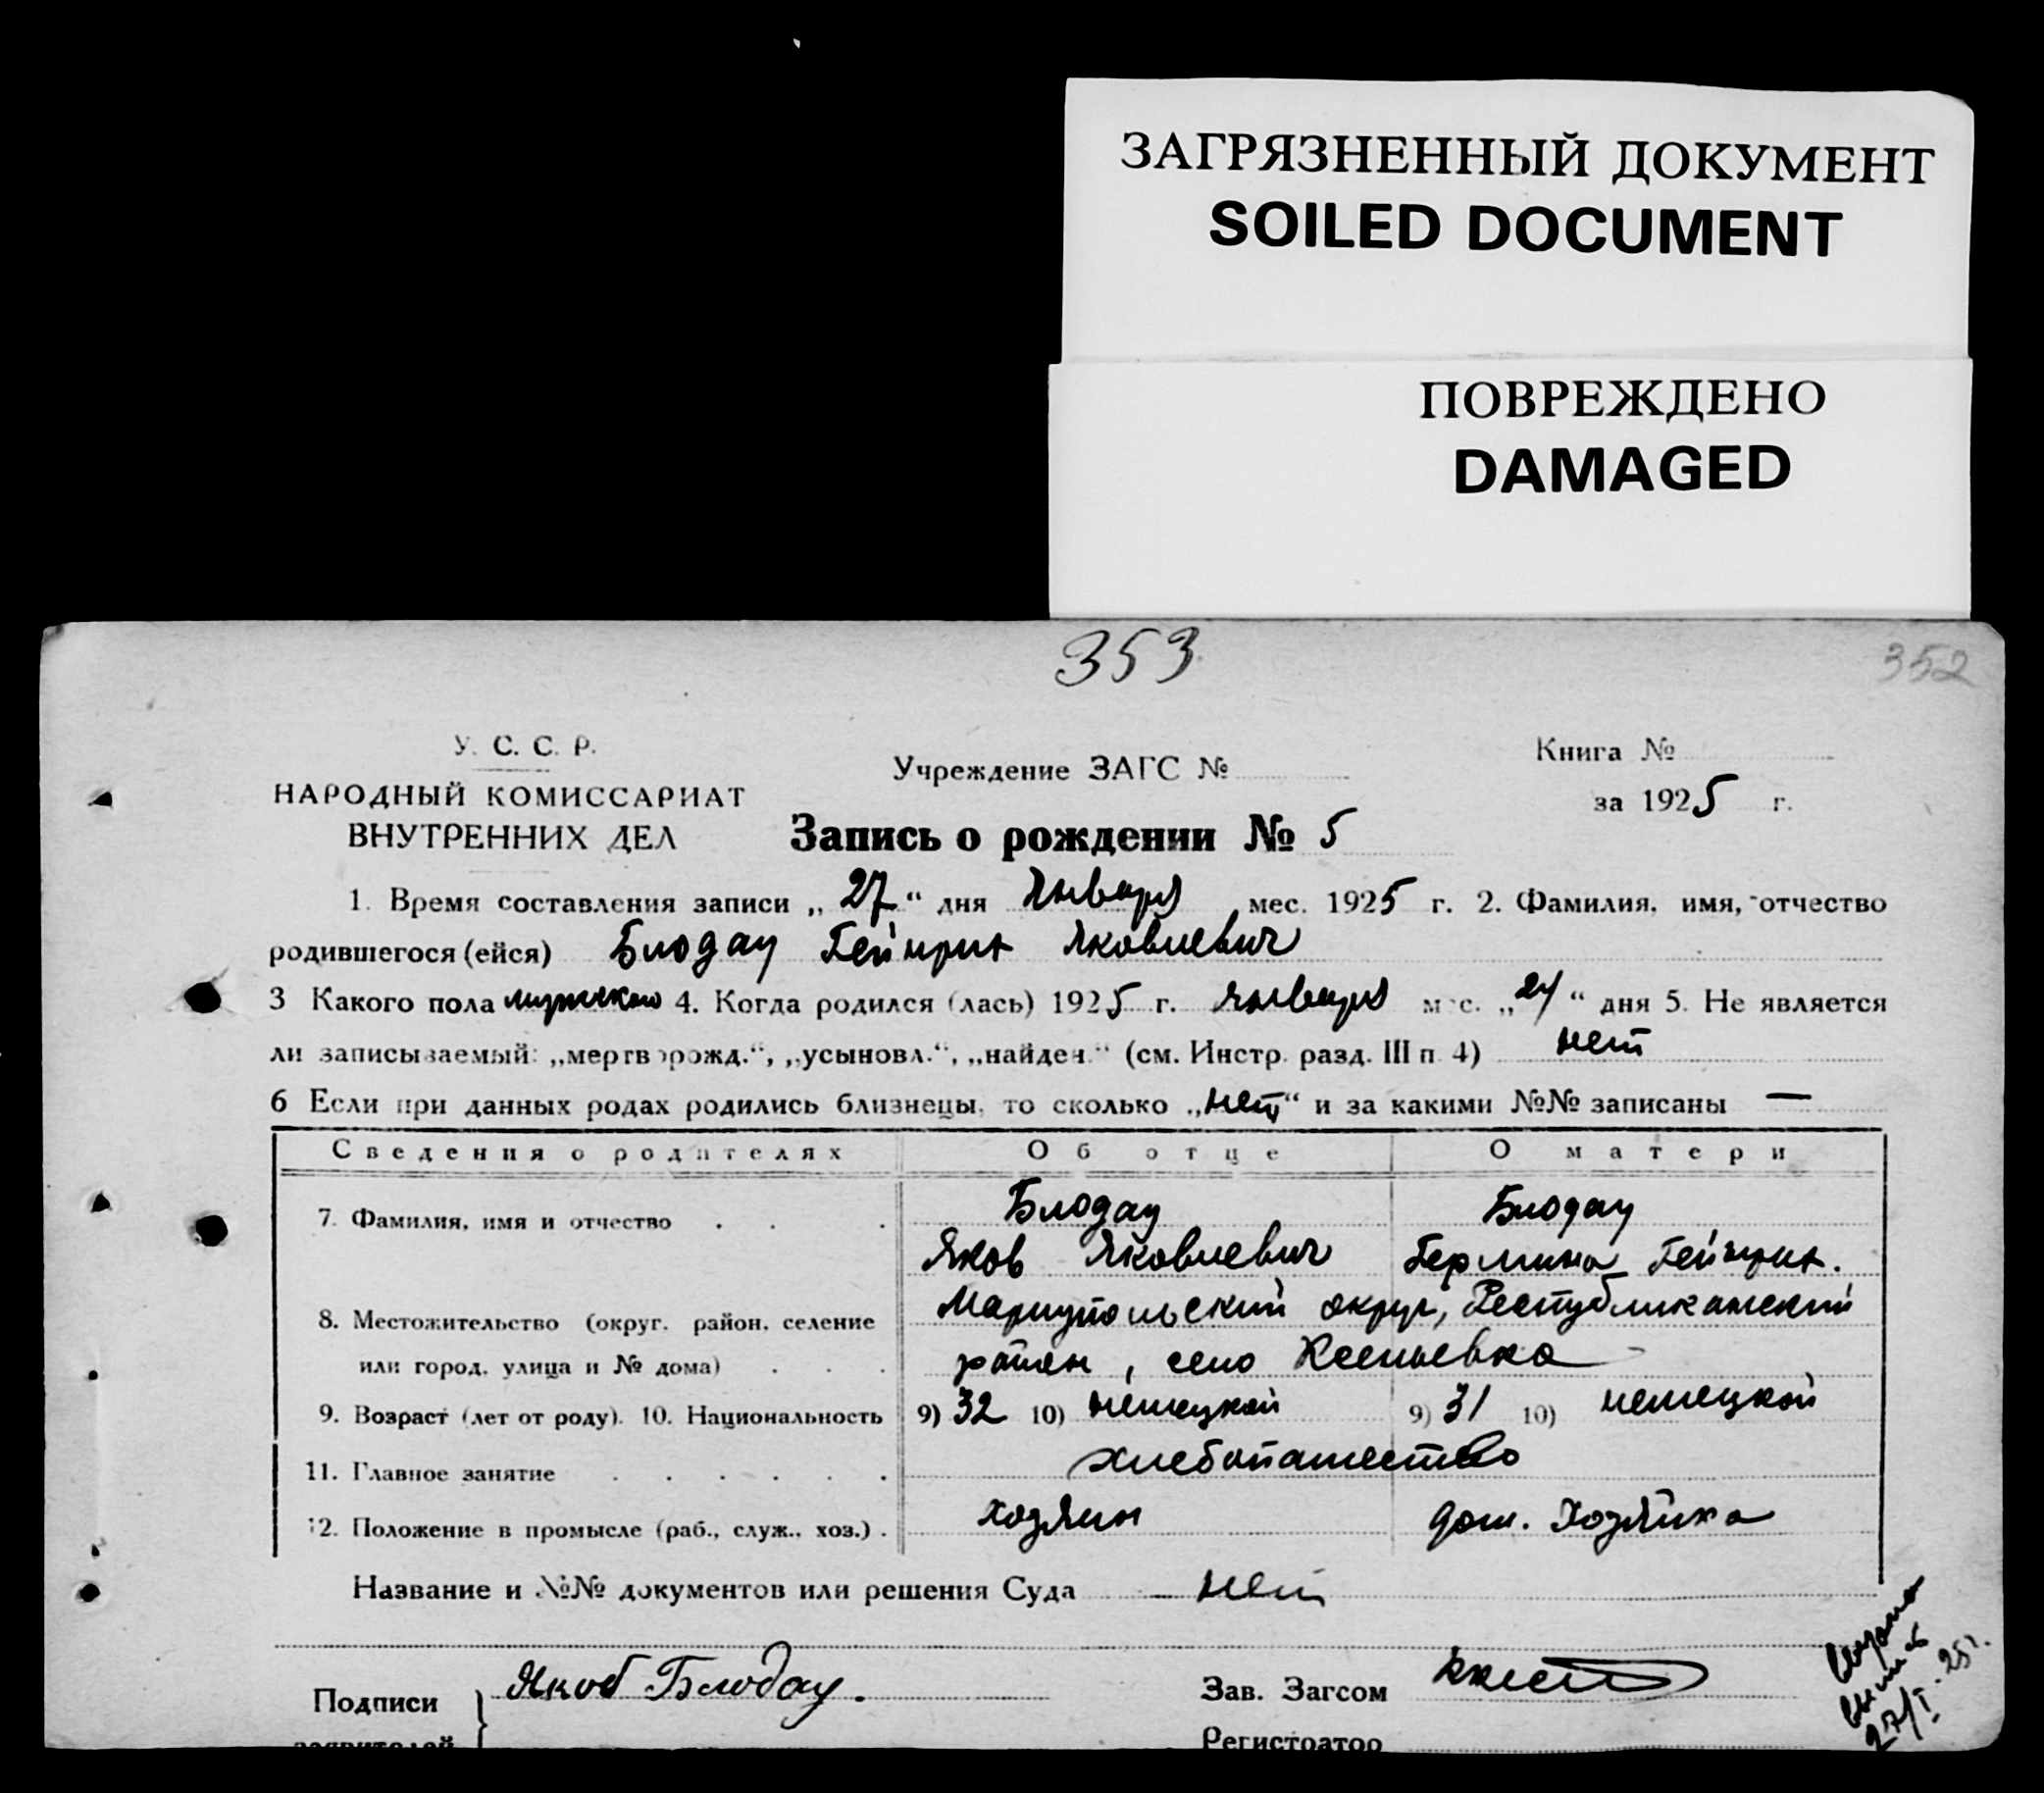 ЗАГРЯЗНЕННЫЙ ДОКУМЕНТ
SOILED DOCUMENT
ПОВРЕЖДЕНО
DAMAGED
353
352
У. С. С. Р.
НАРОДНЫЙ КОМИССАРИАТ
ВНУТРЕННИХ ДЕЛ
Учреждение ЗАГС №
Книга №
за 1925 г.
Запись о рождении № 5
1. Время составления записи „27“ дня Января мес. 1925 г. 2. Фамилия, имя, отчество
родившегося (ейся) Блодау Гейнрих Яковлевич
3 Какого пола мужского 4. Когда родился (лась) 1925 г. января мес. „24“ дня 5. Не является
ли записываемый: „мертворожд.“, „усыновл.“, „найден.“ (см. Инстр. разд. III п. 4) нет
6 Если при данных родах родились близнецы, то сколько „нет“ и за какими №№ записаны —
Сведения о родителях Об отце О матери
7. Фамилия, имя и отчество Блодау Блодау
Яков Яковлевич Гермина Гейнрих.
8. Местожительство (округ, район, селение Мариупольский округ, Республиканский
или город, улица и № дома) район, село Ксеньевка
9. Возраст (лет от роду). 10. Национальность 9) 32 10) немецкой 9) 31 10) немецкой
11. Главное занятие хлебопашество
12. Положение в промысле (раб., служ., хоз.) хозяин дом. Хозяйка
Название и №№ документов или решения Суда нет
Подписи Якоб Блодау.
Зав. Загсом
заявителей
Регистратор
27/I 25 г.